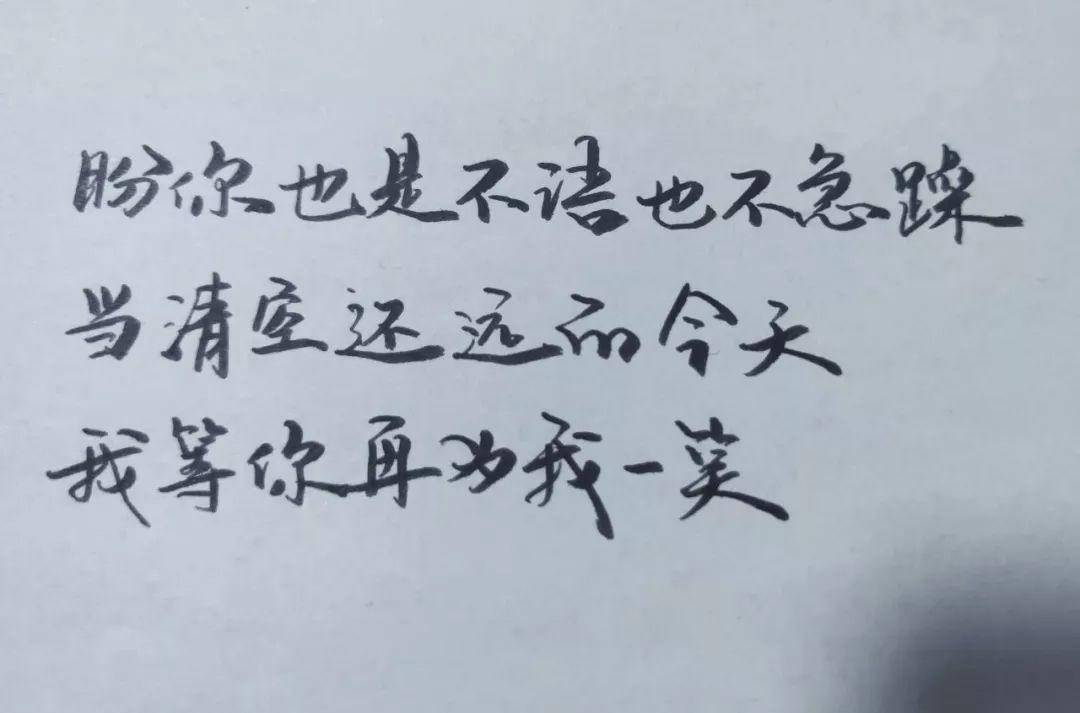 盼你也是不语也不急躁
当清空还远的今天
我等你再为我一笑